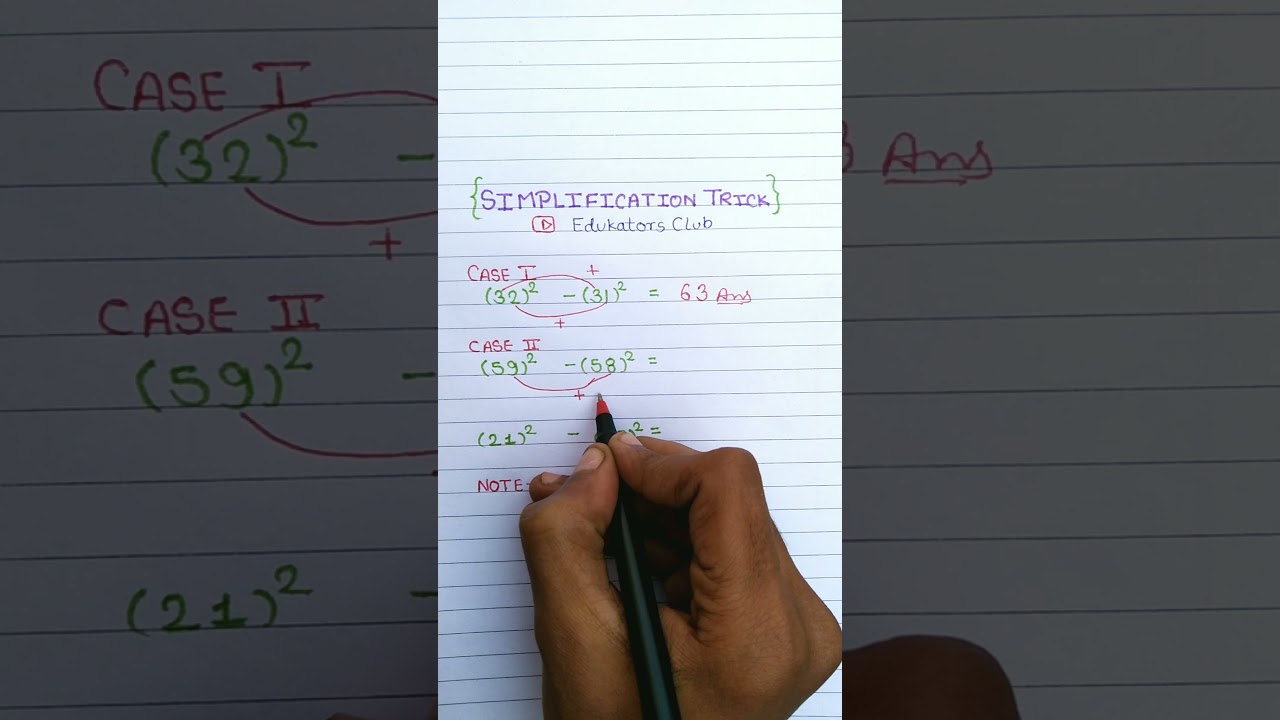 {SIMPLIFICATION TRICK}
Edukators Club
CASE I +
(32)² - (31)² = 63 Ans
+
CASE II
(59)² - (58)² =
+
(21)² - )² =
NOTE-
CASE I
(32)² -
+
Ans
CASE II
(59)² -
(21)² -